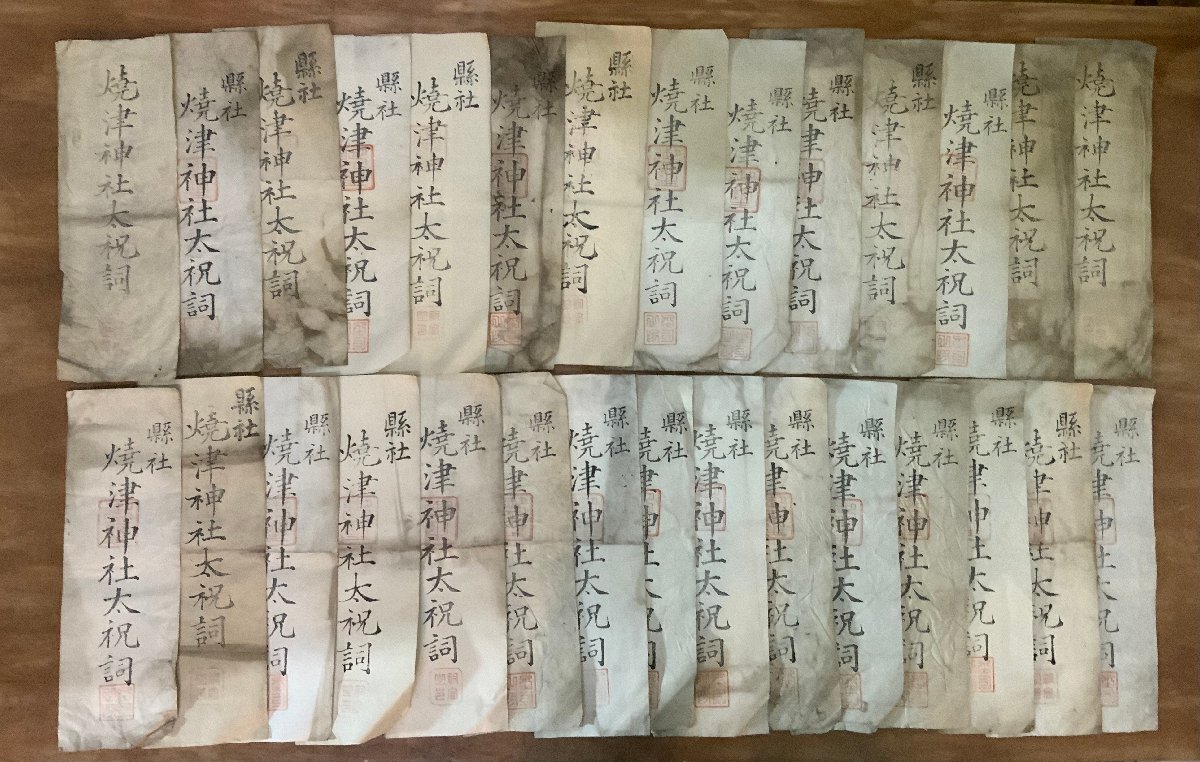 燒津神社太祝詞
燒津神社太祝詞
縣社
燒津神社太祝詞
縣社
燒津神社太祝詞
縣社
燒津神社太祝詞
縣社
燒津神社太祝詞
縣社
燒津神社太祝詞
縣社
燒津神社太祝詞
縣社
燒津神社太祝詞
縣社
燒津神社太祝詞
縣社
燒津神社太祝詞
縣社
燒津神社太祝詞
縣社
燒津神社太祝詞
燒津神社太祝詞
縣社
燒津神社太祝詞
縣社
燒津神社太祝詞
縣社
燒津神社太祝詞
縣社
燒津神社太祝詞
縣社
燒津神社太祝詞
縣社
燒津神社太祝詞
縣社
燒津神社太祝詞
縣社
燒津神社太祝詞
縣社
燒津神社太祝詞
縣社
燒津神社太祝詞
縣社
燒津神社太祝詞
縣社
燒津神社太祝詞
縣社
燒津神社太祝詞
縣社
燒津神社太祝詞
縣社
燒津神社太祝詞